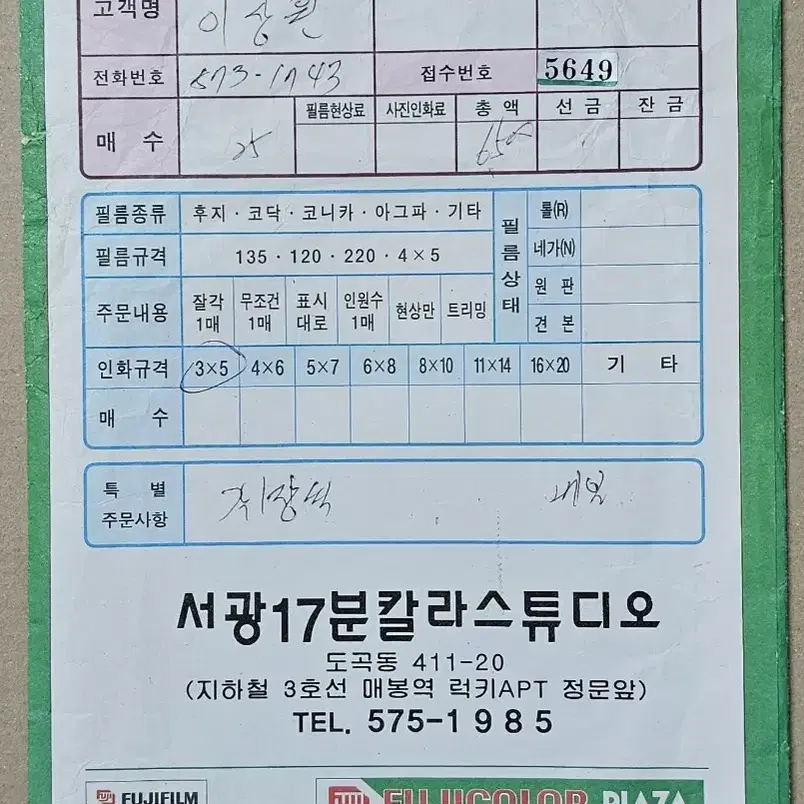 고객명 이상원
전화번호 573-1743 접수번호 5649
필름현상료 사진인화료 총 액 선 금 잔 금
매 수 25 6500
필름종류 후지 · 코닥 · 코니카 · 아그파 · 기타
필름규격 135 · 120 · 220 · 4×5
필름상태
롤(R)
네가(N)
원 판
견 본
주문내용 잘각1매 무조건1매 표시대로 인원수1매 현상만 트리밍
인화규격 3×5 4×6 5×7 6×8 8×10 11×14 16×20 기 타
매 수
특 별
주문사항
서광17분칼라스튜디오
도곡동 411-20
(지하철 3호선 매봉역 럭키APT 정문앞)
TEL. 575-1985
FUJIFILM FUJICOLOR PLAZA